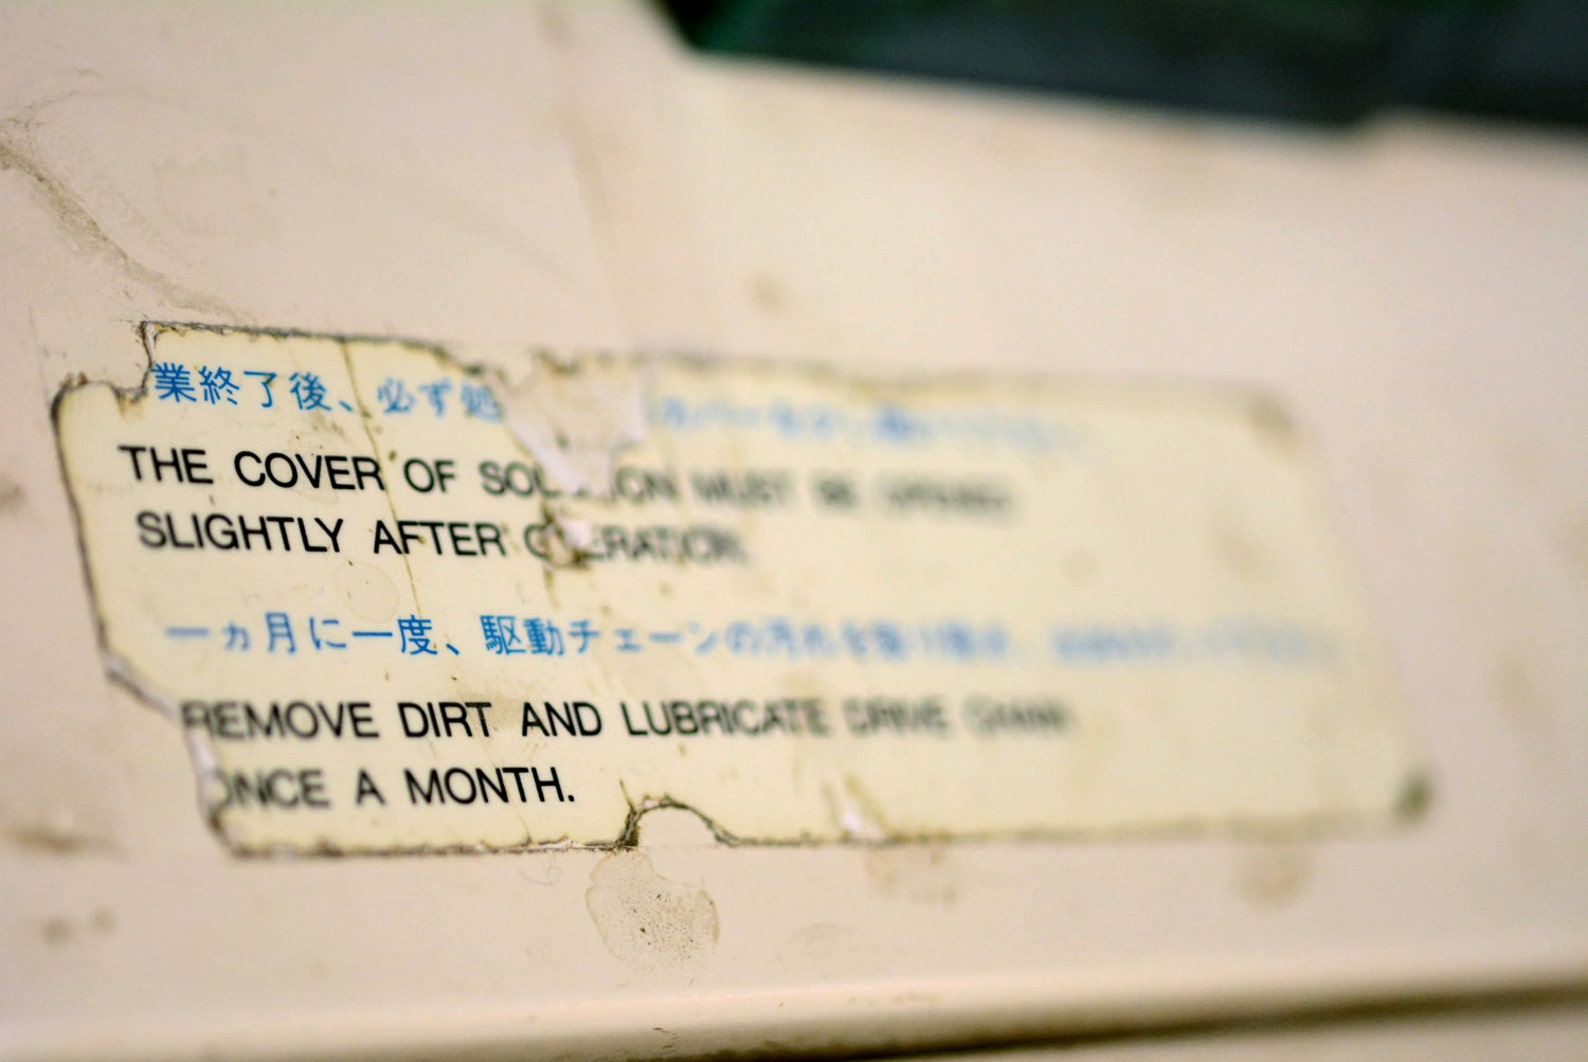 業終了後、必ず処
THE COVER OF SOL ION MUST BE OPENED
SLIGHTLY AFTER OPERATION.
一ヵ月に一度、駆動チェーンの汚れを取り除き、
REMOVE DIRT AND LUBRICATE DRIVE CHAIN
ONCE A MONTH.